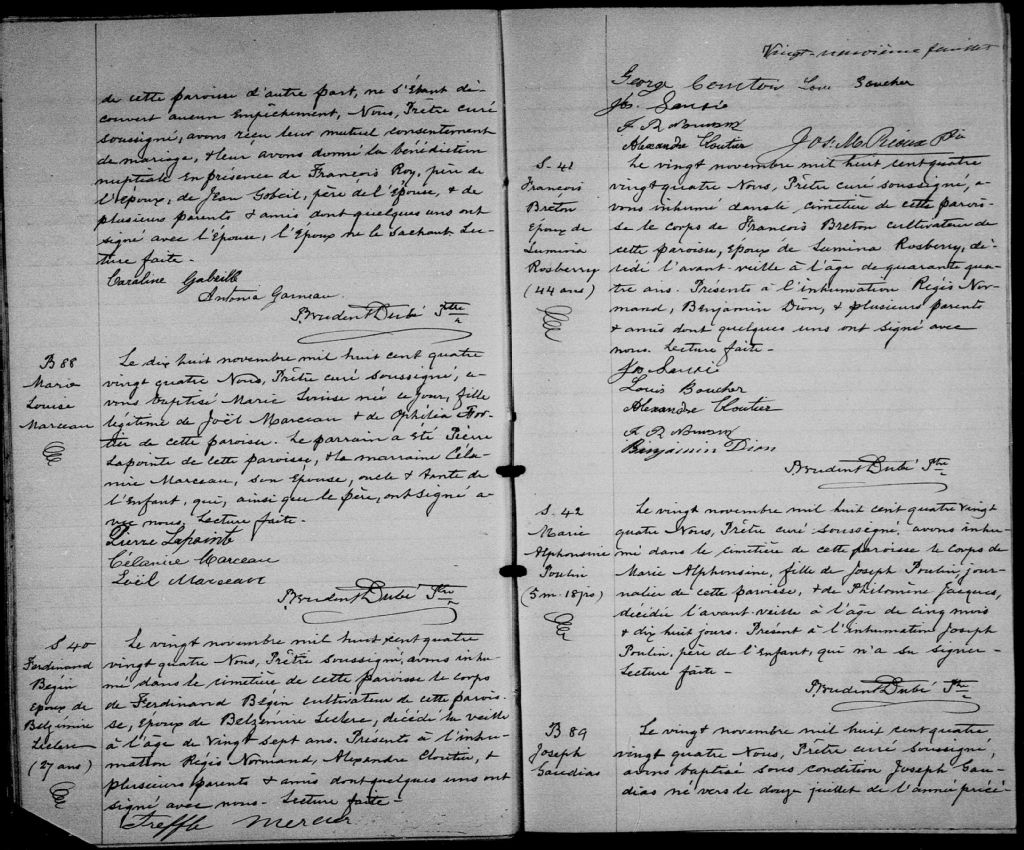 de cette paroisse d'autre part, ne s'étant dé-
couvert aucun Empêchement, Nous, Prêtre curé
soussigné, avons reçu leur mutuel consentement
de mariage, & leur avons donné la bénédiction
nuptiale En présence de François Roy, père de
l'Epoux, de Jean Gobeil, père de l'épouse, & de
plusieurs parents & amis dont quelques uns ont
signé avec l'épouse, l'Epoux ne le Sachant. Lec-
ture faite -
Caroline Gobeille
Antonia Garneau
Prudent Dubé Ptre
B 88
Marie
Louise
Marceau
Le dix huit novembre mil huit cent quatre
vingt quatre Nous, Prêtre curé soussigné, a-
vons baptisé Marie Louise née ce jour, fille
légitime de Joël Marceau & de Ophélia For-
tier de cette paroisse. Le parrain a été Pierre
Lapointe de cette paroisse, & la marraine Céla-
nire Marceau, son épouse, oncle & tante de
l'Enfant, qui, ainsi que le père, ont signé a-
vec nous. Lecture faite -
Pierre Lapointe
Célanire Marceau
Joël Marceau
Prudent Dubé Ptre
S 40
Ferdinand
Bégin
Epoux de
Belzémire
Leclerc
(27 ans)
Le vingt novembre mil huit cent quatre
vingt quatre Nous, Prêtre soussigné, avons inhu-
mé dans le cimetière de cette paroisse le corps
de Ferdinand Bégin cultivateur de cette parois-
se, Epoux de Belzémire Leclerc, décédé la veille
à l'âge de Vingt sept ans. Présents à l'inhu-
mation Régis Normand, Alexandre Cloutier, &
plusieurs parents & amis dont quelques uns ont
signé avec nous - Lecture faite -
Treffle Mercier
Vingt-neuvième feuillet
George Comton Louis Boucher
J. R. Normand
Alexandre Cloutier Jos. M. Rioux Ptr
S - 41
François
Breton
Epoux de
Lumina
Rosberry
(44 ans)
Le vingt novembre mil huit cent quatre
vingt quatre Nous, Prêtre curé soussigné, a-
vons inhumé dans le cimetière de cette parois-
se le corps de François Breton cultivateur de
cette paroisse, Epoux de Lumina Rosberry, dé-
cédé l'avant-veille à l'âge de quarante qua-
tre ans. Présents à l'inhumation Régis Nor-
mand, Benjamin Dion, & plusieurs parents
& amis dont quelques uns ont signé avec
nous. Lecture faite -
Louis Boucher
Alexandre Cloutier
J. R. Normand
Binjamin Dion
Prudent Dubé Ptre
S - 42
Marie
Alphonsine
Poulin
(5 m. 18 jrs)
Le vingt novembre mil huit cent quatre vingt
quatre Nous, Prêtre curé soussigné, avons inhu-
mé dans le cimetière de cette paroisse le corps de
Marie Alphonsine, fille de Joseph Poulin jour-
nalier de cette paroisse, & de Philomène Jacques,
décédée l'avant-veille à l'âge de cinq mois
& dix huit jours. Présent à l'inhumation Joseph
Poulin, père de l'Enfant, qui n'a su signer -
Lecture faite -
Prudent Dubé Ptre
B 89
Joseph
Gaudias
Le vingt novembre mil huit cent quatre
vingt quatre Nous, Prêtre curé soussigné,
avons baptisé sous condition Joseph Gau-
dias né vers le douze juillet de l'année précé-